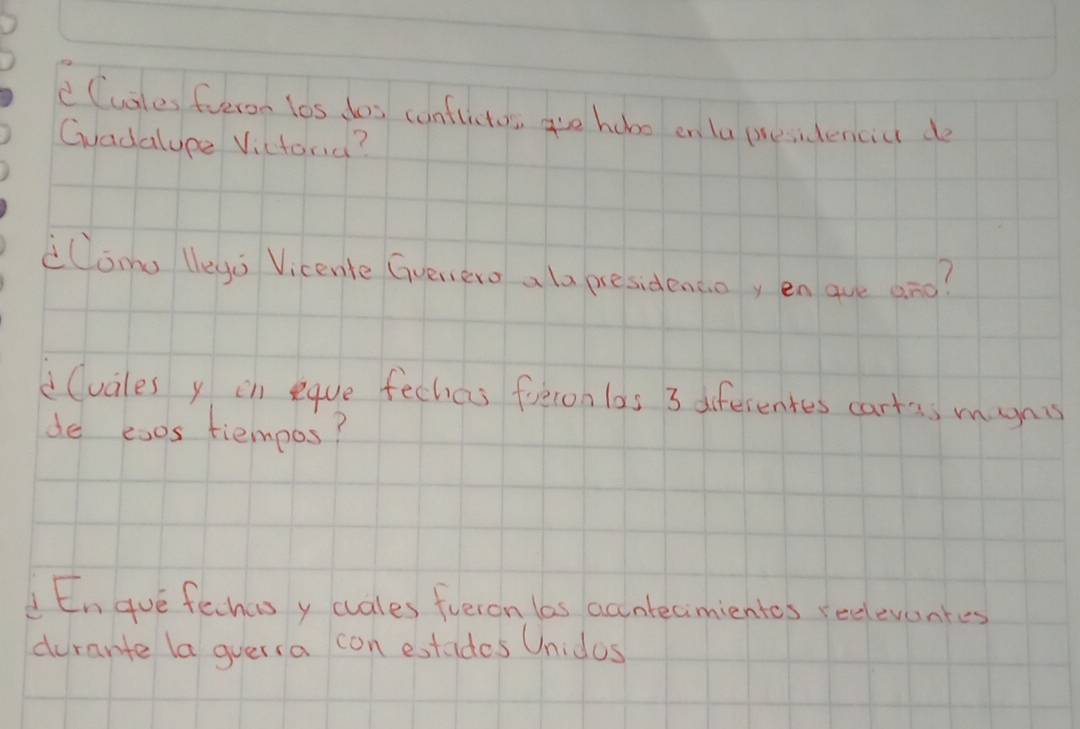 ¿Cuáles fueron los dos conflictos que hubo en la presidencia de
Guadalupe Victoria?
¿Cómo llegó Vicente Guerrero a la presidencia y en que año?
¿Cuáles y en eque fechas fueron las 3 diferentes cartas magnas
de esos tiempos?
¿En qué fechas y cuales fueron los acontecimientos reelevantes
durante la guerra con estados Unidos